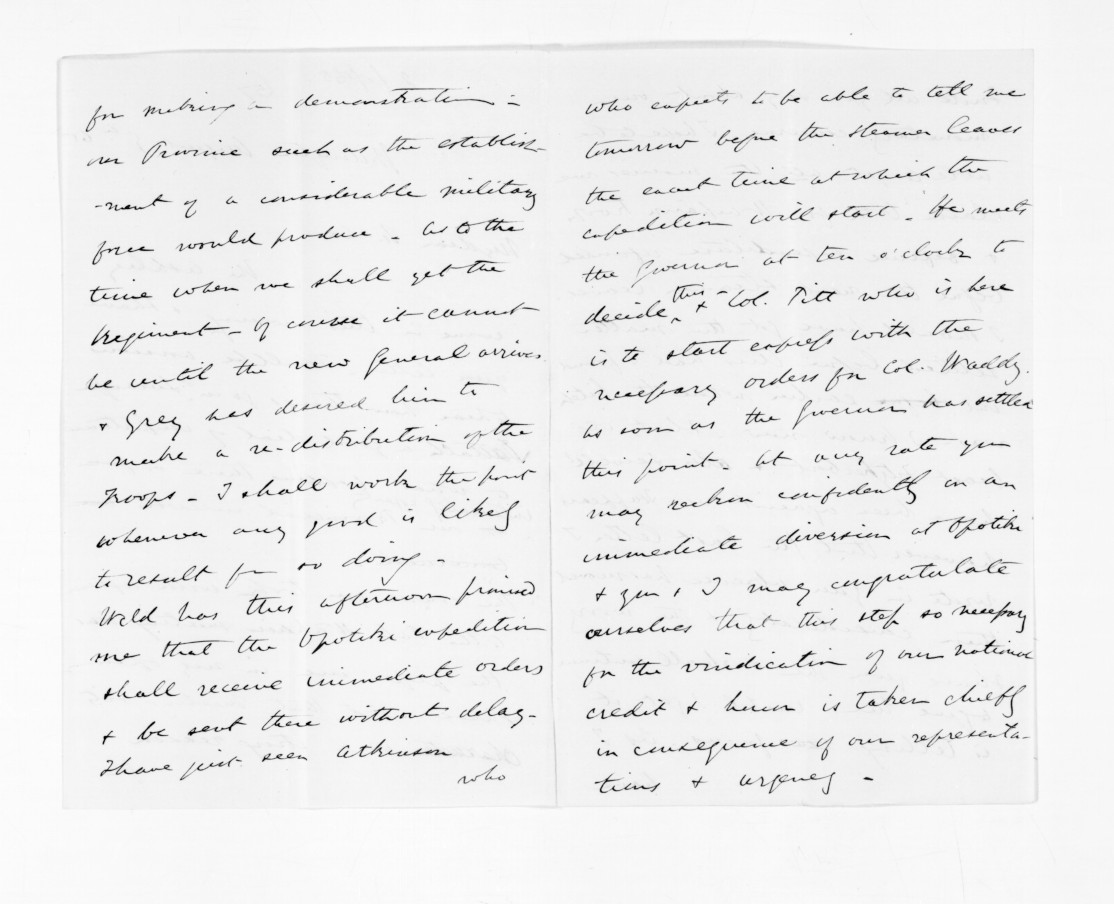 for making a demonstration -
our Province such as the establish-
-ment of a considerable military
force would produce - As to the
time when we shall get the
Regiment - Of course it cannot
be until the new General arrives
& Grey has desired him to
make a re-distribution of the
Troops - I shall work the point
whenever any good is likely
to result from so doing -
Weld has this afternoon promised
me that the Opotiki expedition
shall receive immediate orders
& be sent there without delay -
I have just seen Atkinson
who
who expects to be able to tell me
tomorrow before the steamer leaves
the exact time at which the
expedition will start - He meets
the Governor at ten o'clock to
decide this - & Col. Pitt who is here
is to start express with the
necessary orders for Col. Waddy.
as soon as the Governor has settled
this point - At any rate you
may reckon confidently on an
immediate diversion at Opotiki
& you & I may congratulate
ourselves that this step so necessary
for the vindication of our national
credit & honor is taken chiefly
in consequence of our representa-
tions & urgency -